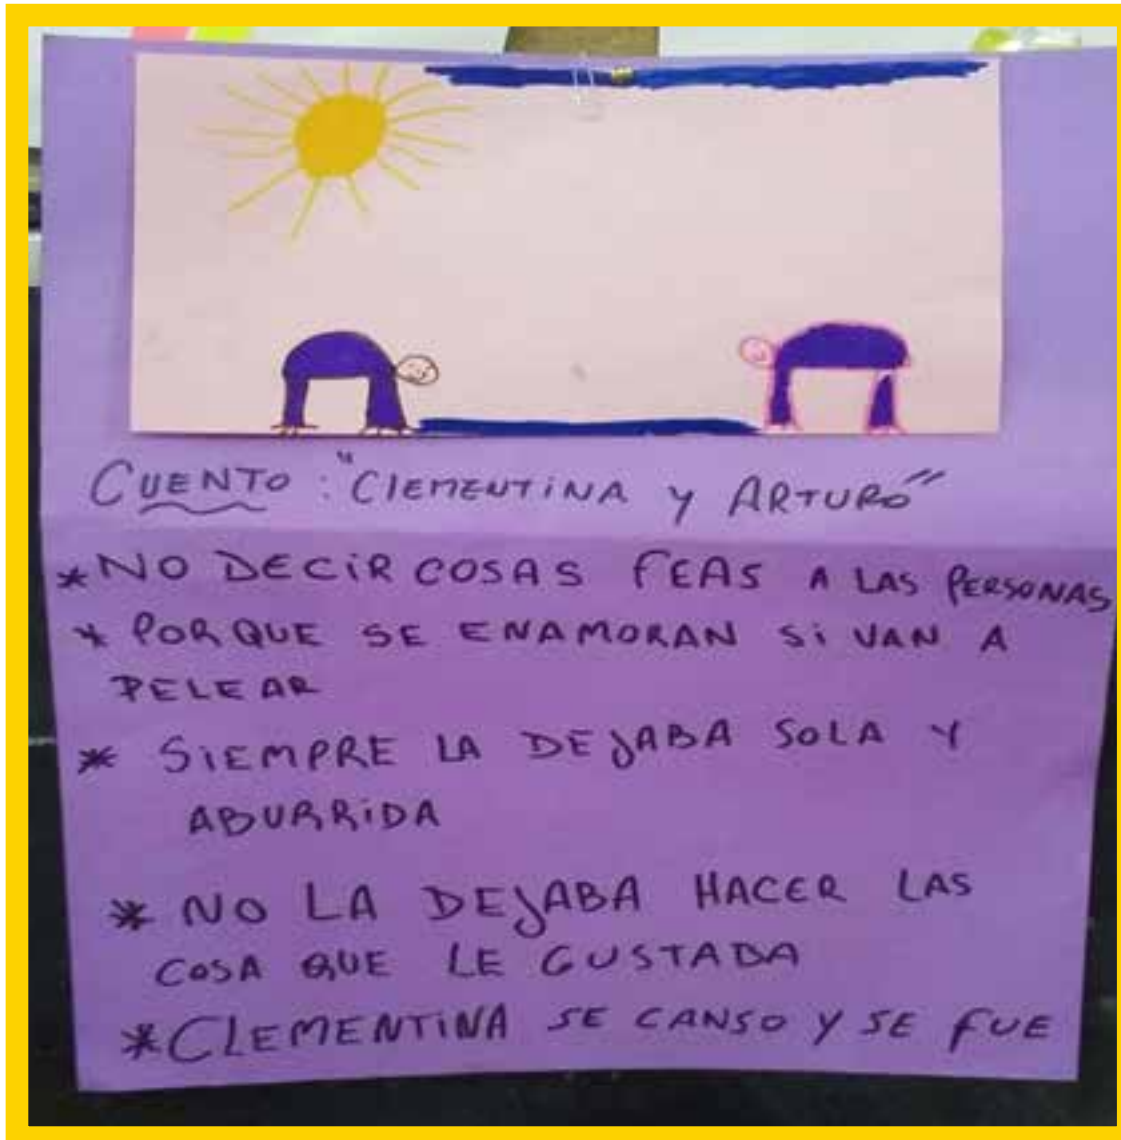 CUENTO: "CLEMENTINA Y ARTURO"
* NO DECIR COSAS FEAS A LAS PERSONAS
* PORQUE SE ENAMORAN SI VAN A
PELEAR
* SIEMPRE LA DEJABA SOLA Y
ABURRIDA
* NO LA DEJABA HACER LAS
COSA QUE LE GUSTADA
* CLEMENTINA SE CANSO Y SE FUE